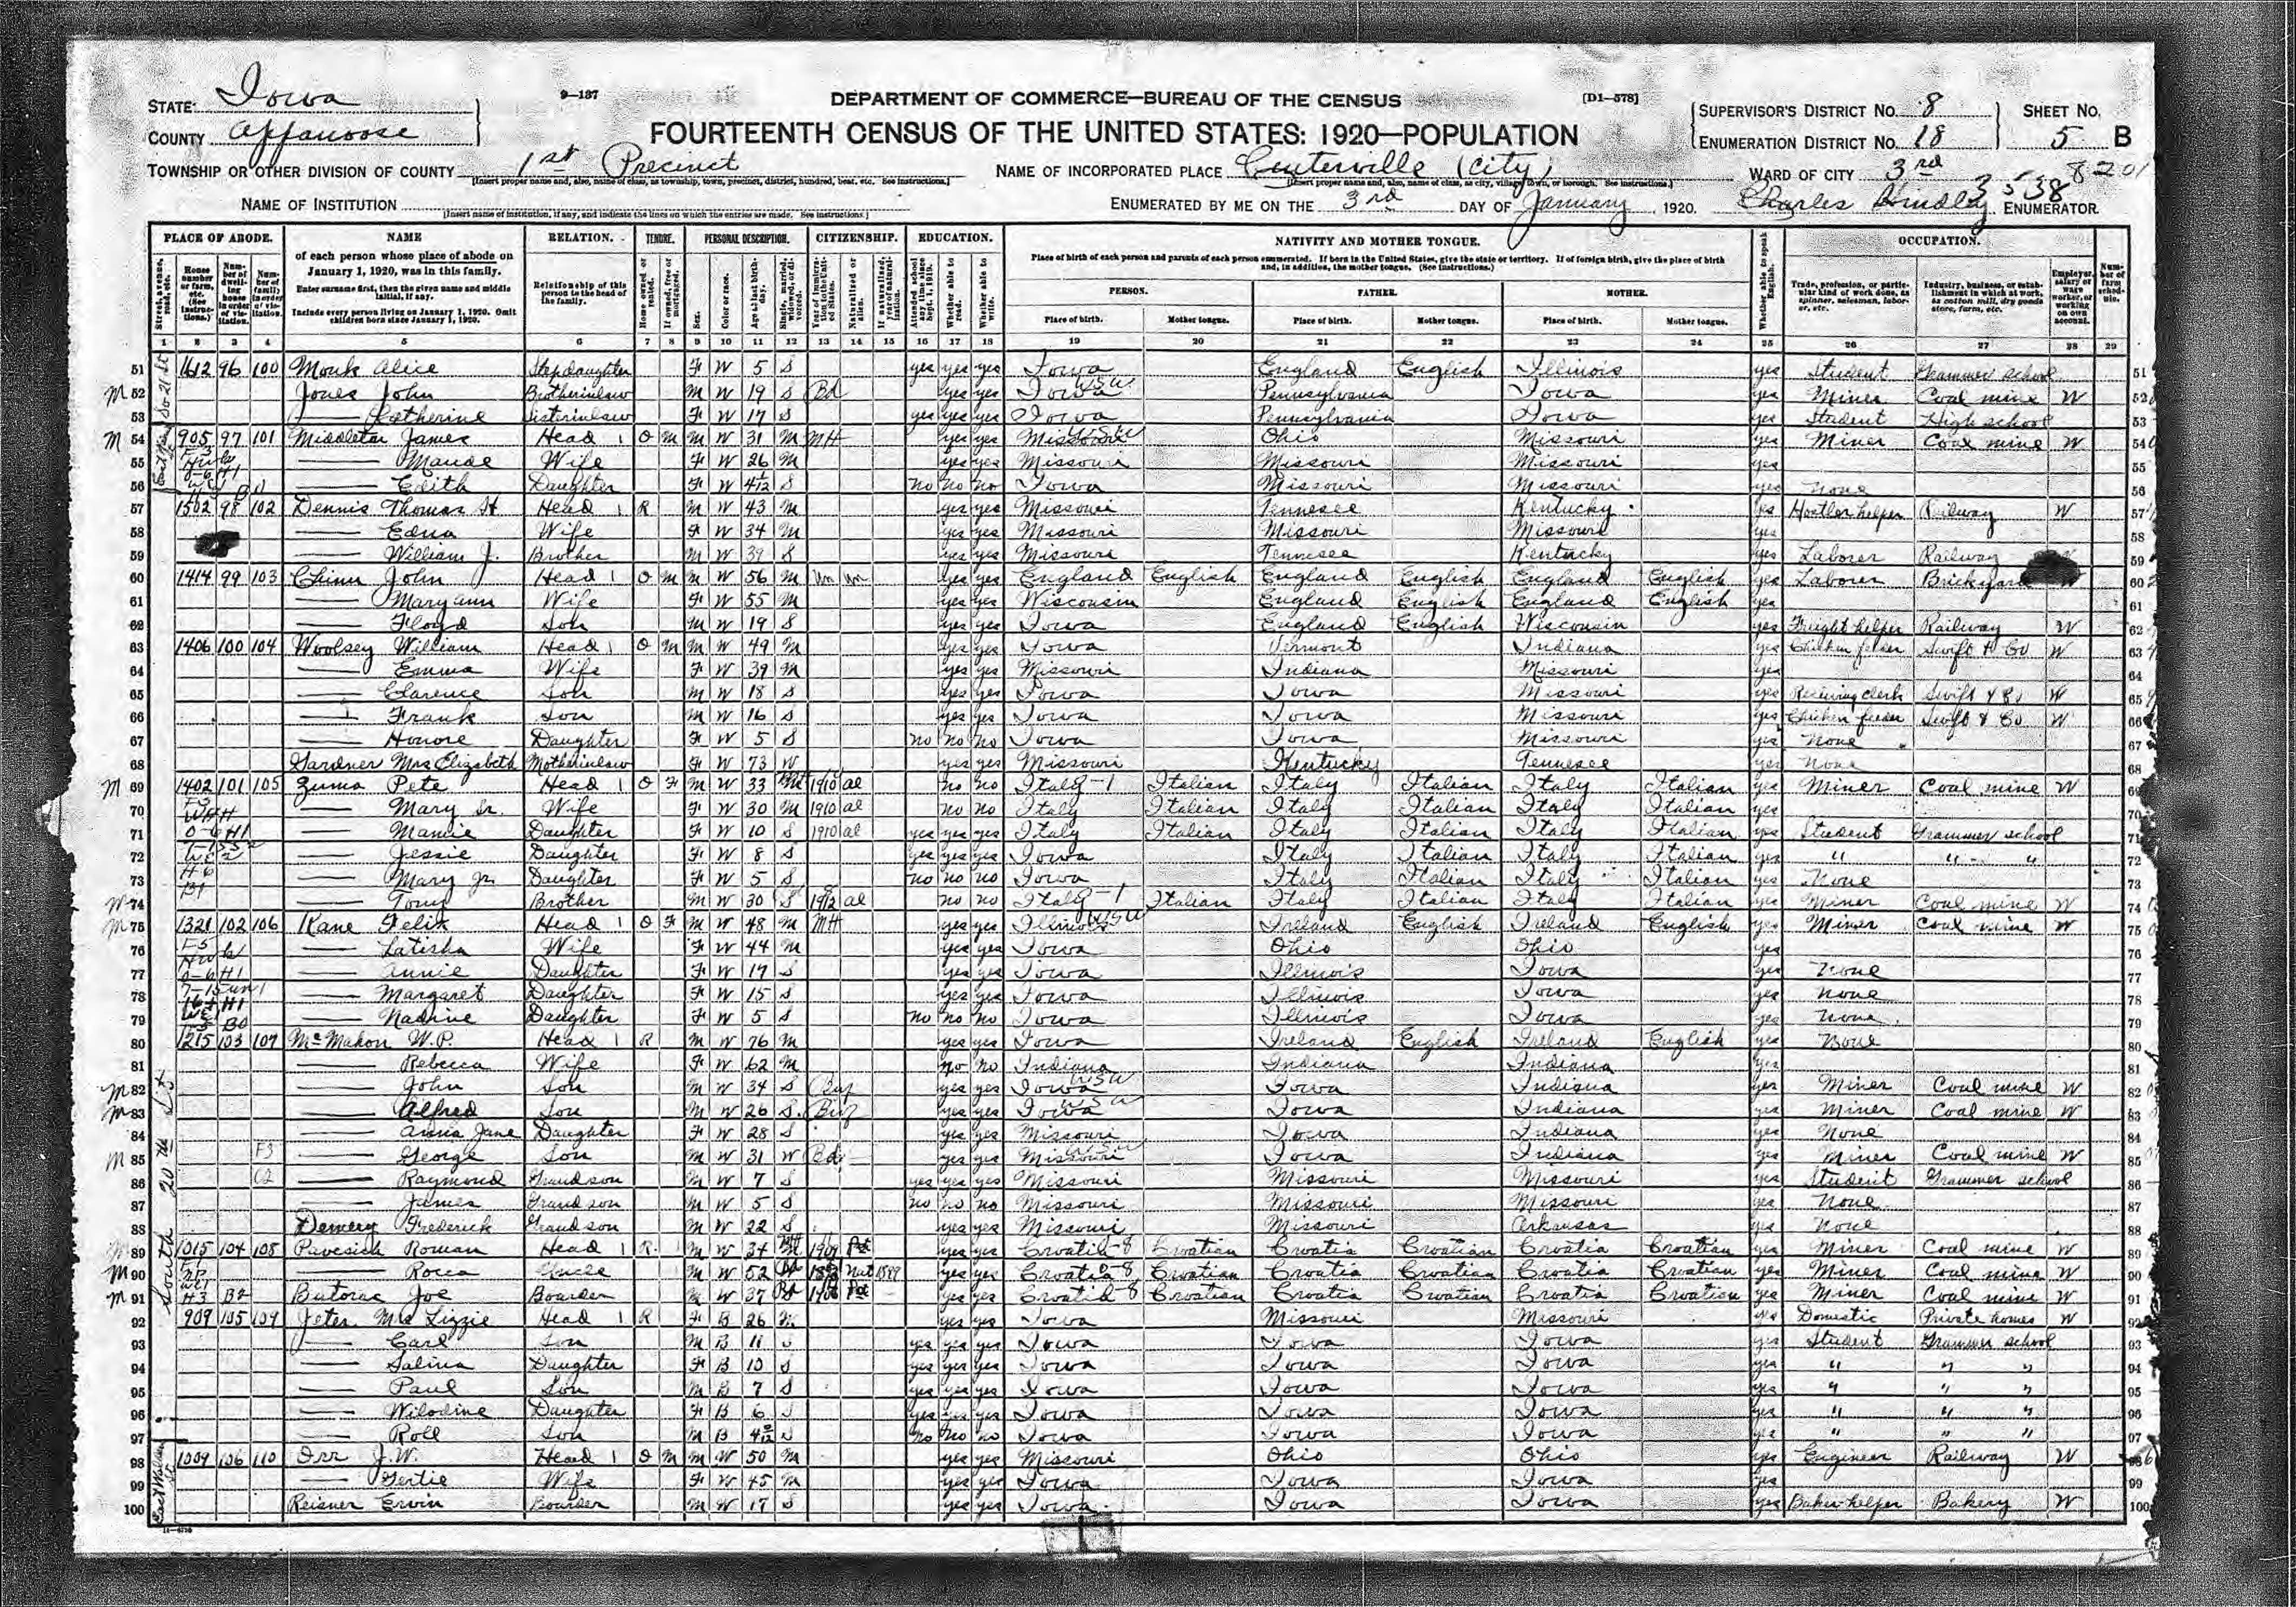 STATE Iowa
9—137
DEPARTMENT OF COMMERCE—BUREAU OF THE CENSUS
[D1—578]
COUNTY Appanoose
FOURTEENTH CENSUS OF THE UNITED STATES: 1920—POPULATION
SUPERVISOR'S DISTRICT No. 8
SHEET No.
ENUMERATION DISTRICT No. 18
5 B
TOWNSHIP OR OTHER DIVISION OF COUNTY 1st Precinct
NAME OF INCORPORATED PLACE Centerville (City)
WARD OF CITY 3rd
8201
NAME OF INSTITUTION
ENUMERATED BY ME ON THE 3rd DAY OF January, 1920. Charles Hindley ENUMERATOR
3538
PLACE OF ABODE. NAME RELATION. TENURE. PERSONAL DESCRIPTION. CITIZENSHIP. EDUCATION. NATIVITY AND MOTHER TONGUE. OCCUPATION.
of each person whose place of abode on January 1, 1920, was in this family.
Enter surname first, then the given name and middle initial, if any.
Include every person living on January 1, 1920. Omit children born since January 1, 1920.
Relationship of this person to the head of the family.
Place of birth of each person and parents of each person enumerated. If born in the United States, give the state or territory. If of foreign birth, give the place of birth and, in addition, the mother tongue. (See instructions.)
PERSON. FATHER. MOTHER.
Place of birth. Mother tongue. Place of birth. Mother tongue. Place of birth. Mother tongue.
1 2 3 4 5 6 7 8 9 10 11 12 13 14 15 16 17 18 19 20 21 22 23 24 25 26 27 28 29
51 1612 96 100 Monk Alice Stepdaughter F W 5 S yes yes yes Iowa England English Illinois yes Student Grammer school 51
M 52 Jones John Brotherinlaw M W 19 S Bd yes yes Iowa Pennsylvania Iowa yes Miner Coal mine W 52
53 — Catherine Sisterinlaw F W 17 S yes yes yes Iowa Pennsylvania Iowa yes Student High school 53
M 54 905 97 101 James Head 1 O M M W 31 M MH yes yes Missouri Ohio Missouri yes Miner Coal mine W 54
55 — Maude Wife F W 26 M yes yes Missouri Missouri Missouri yes 55
56 — Edith Daughter F W S no no no Iowa Missouri Missouri yes none 56
57 1502 98 102 Dennis Thomas H Head 1 R M W 43 M yes yes Missouri Tennesee Kentucky yes Hostler helper Railway W 57
58 — Edna Wife F W 34 M yes yes Missouri Missouri Missouri yes 58
59 — William J. Brother M W 39 S yes yes Missouri Tennesee Kentucky yes Laborer Railway 59
60 1414 99 103 Chinn John Head 1 O M M W 56 M Un Un yes yes England English England English England English yes Laborer Brickyard W 60
61 — Mary ann Wife F W 55 M yes yes Wisconsin England English England English yes 61
62 — Floyd Son M W 19 S yes yes Iowa England English Wisconsin yes Freight helper Railway W 62
63 1406 100 104 Woolsey William Head 1 O M M W 49 M yes yes Iowa Vermont Indiana yes Chicken feeder Swift & Co W 63
64 — Emma Wife F W 39 M yes yes Missouri Indiana Missouri yes 64
65 — Clarence Son M W 18 S yes yes Iowa Iowa Missouri yes Receiving clerk Swift & Co W 65
66 — Frank Son M W 16 S yes yes Iowa Iowa Missouri yes Chicken feeder Swift & Co W 66
67 — Honore Daughter F W 5 S no no no Iowa Iowa Missouri yes None 67
68 Gardner Mrs Elizabeth Motherinlaw F W 73 W yes yes Missouri Kentucky Tennesee yes None 68
M 69 1402 101 105 Zuma Pete Head 1 O F M W 33 M 1910 al no no Italy Italian Italy Italian Italy Italian yes Miner Coal mine W 69
70 — Mary Sr. Wife F W 30 M 1910 al no no Italy Italian Italy Italian Italy Italian yes 70
71 — Mamie Daughter F W 10 S 1910 al yes yes yes Italy Italian Italy Italian Italy Italian yes Student Grammer school 71
72 — Jessie Daughter F W 8 S yes yes yes Iowa Italy Italian Italy Italian yes " " " 72
73 — Mary Jr. Daughter F W 5 S no no no Iowa Italy Italian Italy Italian yes None 73
74 — Tony Brother M W 30 S 1912 al no no Italy Italian Italy Italian Italy Italian yes Miner Coal mine W 74
M 75 1321 102 106 Kane Felix Head 1 O F M W 48 M MH yes yes Illinois Ireland English Ireland English yes Miner Coal mine W 75
76 — Latisha Wife F W 44 M yes yes Iowa Ohio Ohio yes 76
77 — Annie Daughter F W 17 S yes yes Iowa Illinois Iowa yes None 77
78 — Margaret Daughter F W 15 S yes yes Iowa Illinois Iowa yes None 78
79 — Nadine Daughter F W 5 S no no no Iowa Illinois Iowa yes None 79
80 1215 103 107 McMahon W.P. Head 1 R M W 76 M yes yes Iowa Ireland English Ireland English yes None 80
81 — Rebecca Wife F W 62 M no no Indiana Indiana Indiana yes 81
M 82 — John Son M W 34 S yes yes Iowa Iowa Indiana yes Miner Coal mine W 82
M 83 — Alfred Son M W 26 S yes yes Iowa Iowa Indiana yes Miner Coal mine W 83
84 — Anna Jane Daughter F W 28 S yes yes Missouri Iowa Indiana yes None 84
M 85 — George Son M W 31 W Bd yes yes Missouri Iowa Indiana yes Miner Coal mine W 85
86 — Raymond Grandson M W 7 S yes yes yes Missouri Missouri Missouri yes Student Grammer school 86
87 — James Grandson M W 5 S no no no Missouri Missouri Missouri yes None 87
88 Demery Frederick Grandson M W 22 S yes yes Missouri Missouri Arkansas yes None 88
89 1015 104 108 Pavesich Roman Head 1 R M W 34 M yes yes Croatia Croatian Croatia Croatian Croatia Croatian yes Miner Coal mine W 89
M 90 — Rocca Uncle M W 52 yes yes Croatia Croatian Croatia Croatian Croatia Croatian yes Miner Coal mine W 90
M 91 Butorac Joe Boarder M W 37 yes yes Croatia Croatian Croatia Croatian Croatia Croatian yes Miner Coal mine W 91
92 909 105 109 Jeter Mrs Lizzie Head 1 R F B 26 yes yes Iowa Missouri Missouri yes Domestic Private homes W 92
93 — Carl Son M B 11 S yes yes yes Iowa Iowa Iowa yes Student Grammer school 93
94 — Salina Daughter F B 10 S yes yes yes Iowa Iowa Iowa yes " " " 94
95 — Paul Son M B 7 S yes yes yes Iowa Iowa Iowa yes " " " 95
96 — Wilodine Daughter F B 6 S yes yes yes Iowa Iowa Iowa yes " " " 96
97 — Roll Son M B S no no no Iowa Iowa Iowa yes " " " 97
98 1009 106 110 Orr J.W. Head 1 O M M W 50 M yes yes Missouri Ohio Ohio yes Engineer Railway W 98
99 — Gertie Wife F W 45 M yes yes Iowa Iowa Iowa yes 99
100 Reisner Ervin Boarder M W 17 S yes yes Iowa Iowa Iowa yes Baker helper Bakery W 100